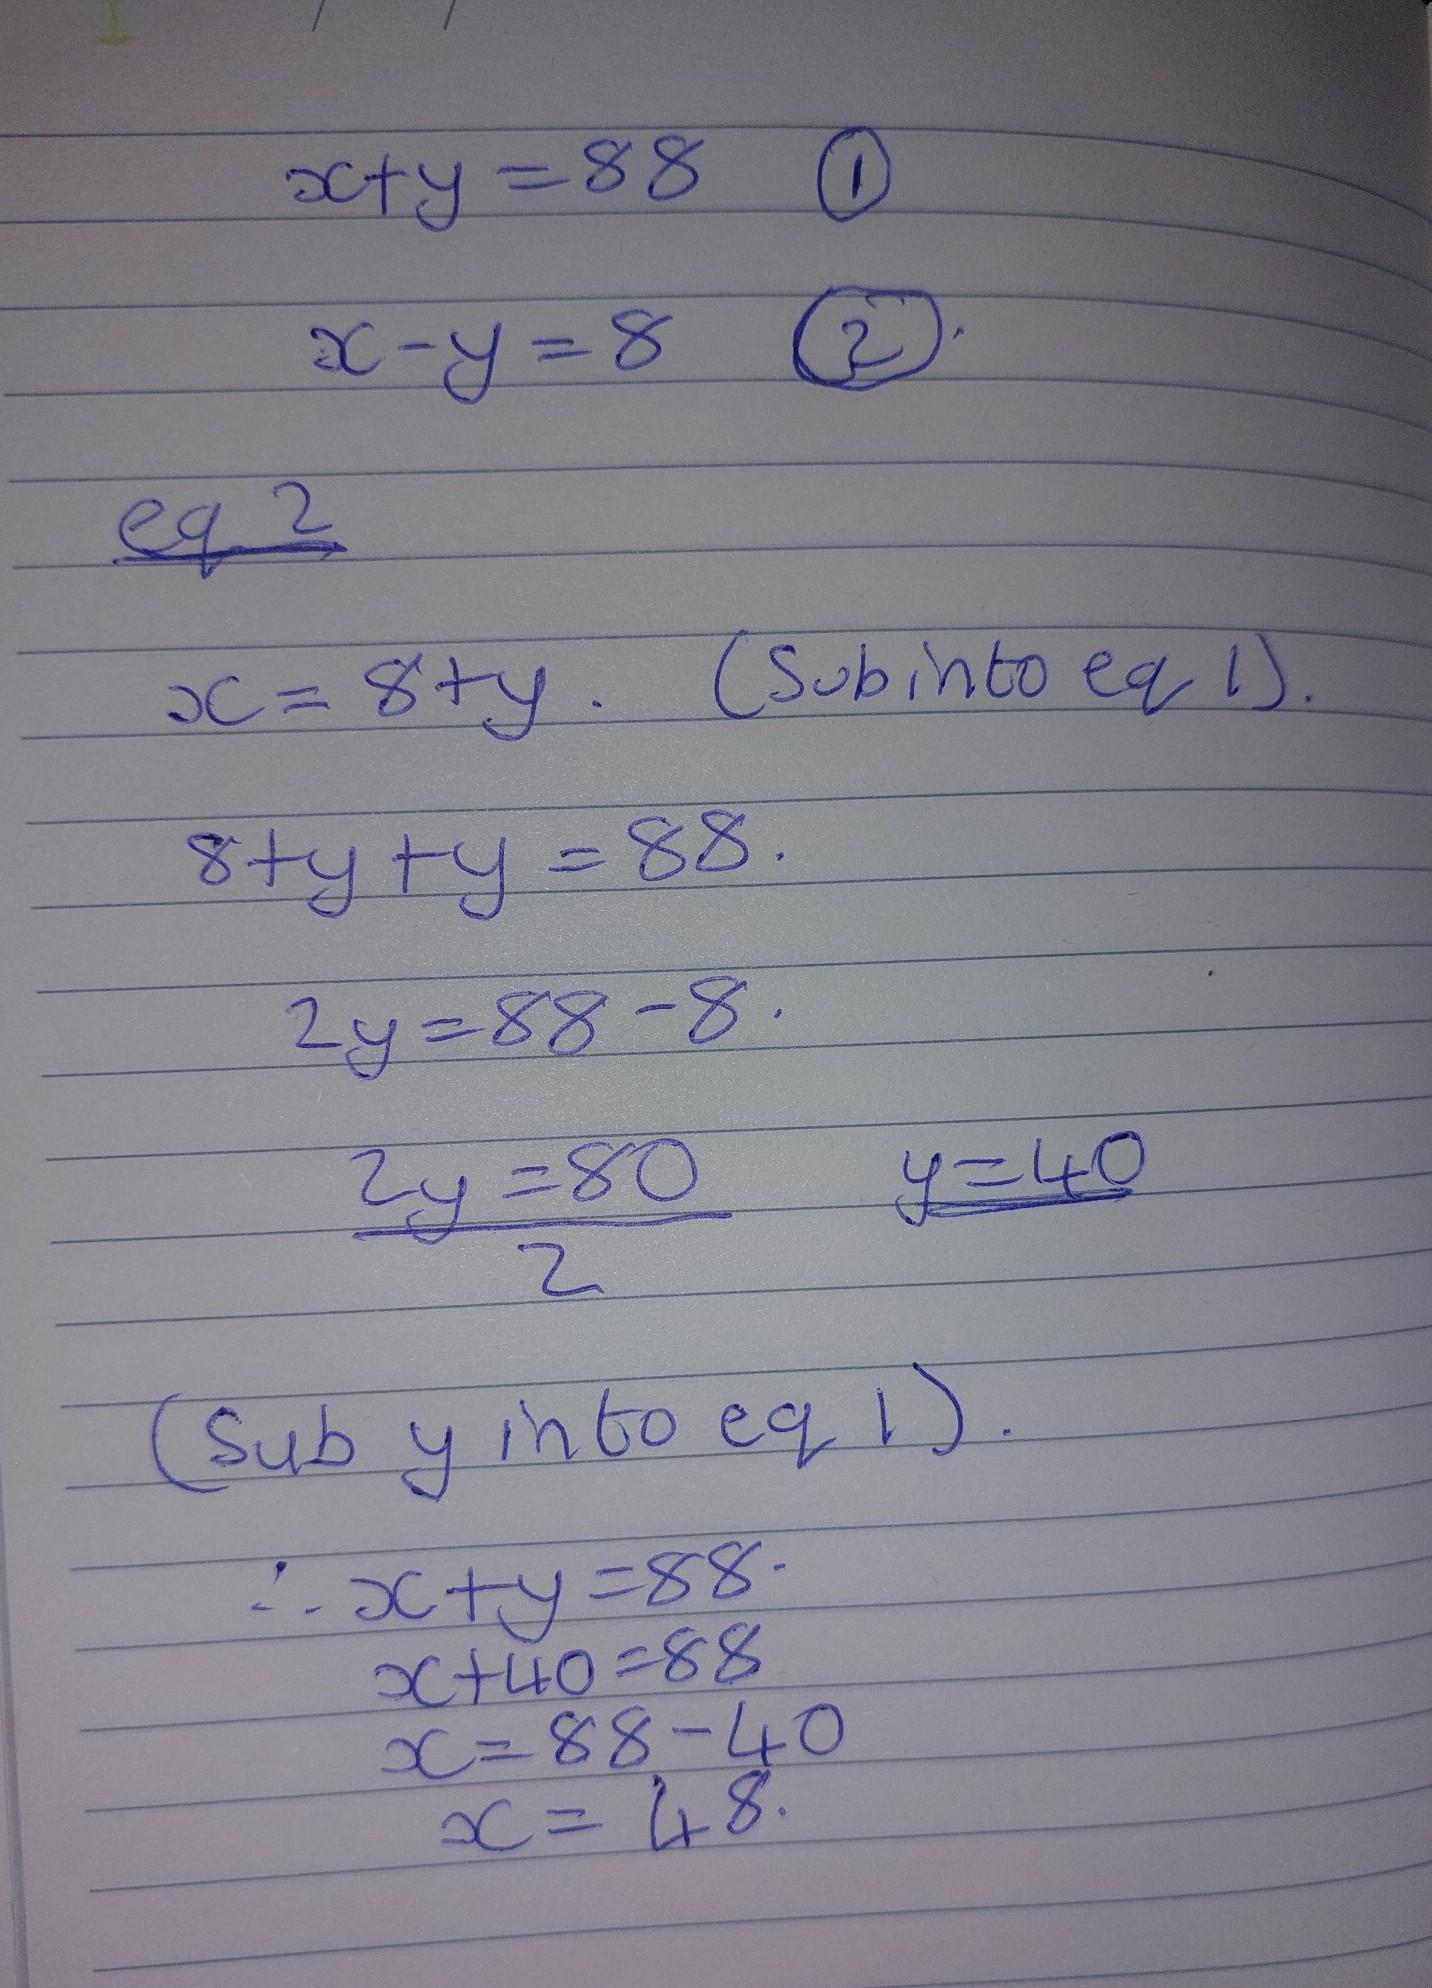 x+y=88 ①
x-y=8 ②.
eq 2
x=8+y. (Sub into eq 1).
8+y+y=88.
2y=88-8.
2y=80 y=40
2
(Sub y into eq 1).
∴ x+y=88.
x+40=88
x=88-40
x=48.